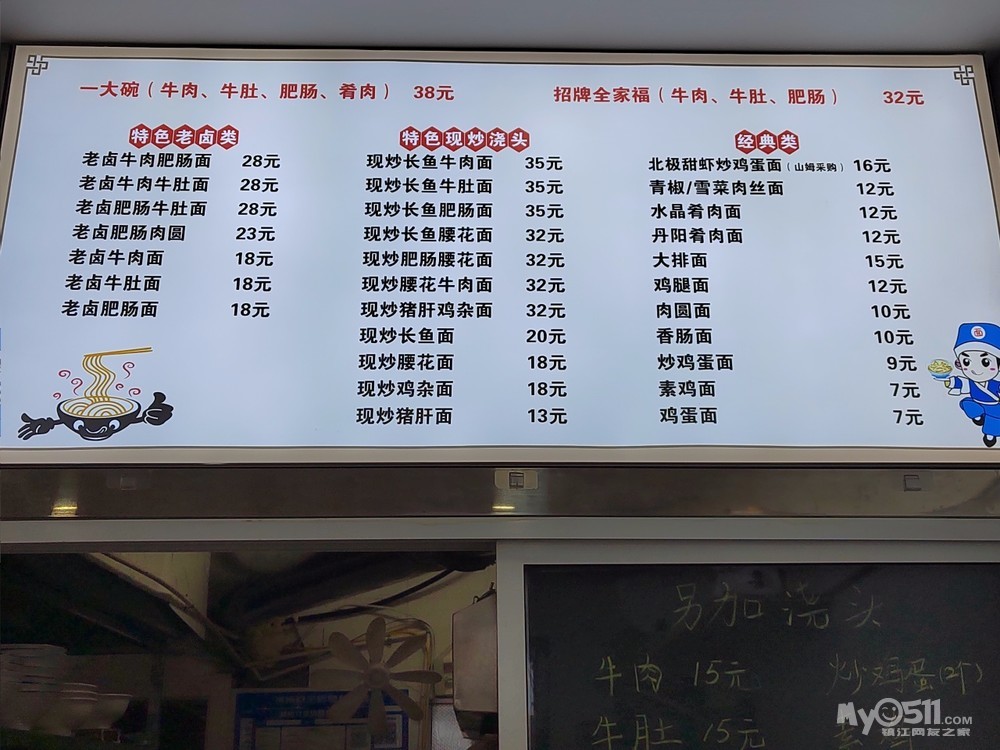 一大碗（牛肉、牛肚、肥肠、肴肉） 38元
招牌全家福（牛肉、牛肚、肥肠） 32元
特色老卤类
老卤牛肉肥肠面 28元
老卤牛肉牛肚面 28元
老卤肥肠牛肚面 28元
老卤肥肠肉圆 23元
老卤牛肉面 18元
老卤牛肚面 18元
老卤肥肠面 18元
特色现炒浇头
现炒长鱼牛肉面 35元
现炒长鱼牛肚面 35元
现炒长鱼肥肠面 35元
现炒长鱼腰花面 32元
现炒肥肠腰花面 32元
现炒腰花牛肉面 32元
现炒猪肝鸡杂面 32元
现炒长鱼面 20元
现炒腰花面 18元
现炒鸡杂面 18元
现炒猪肝面 13元
经典类
北极甜虾炒鸡蛋面（山姆采购） 16元
青椒/雪菜肉丝面 12元
水晶肴肉面 12元
丹阳肴肉面 12元
大排面 15元
鸡腿面 12元
肉圆面 10元
香肠面 10元
炒鸡蛋面 9元
素鸡面 7元
鸡蛋面 7元
面
另加浇头
牛肉 15元 炒鸡蛋(2个)
牛肚 15元
My0511.com
镇江网友之家